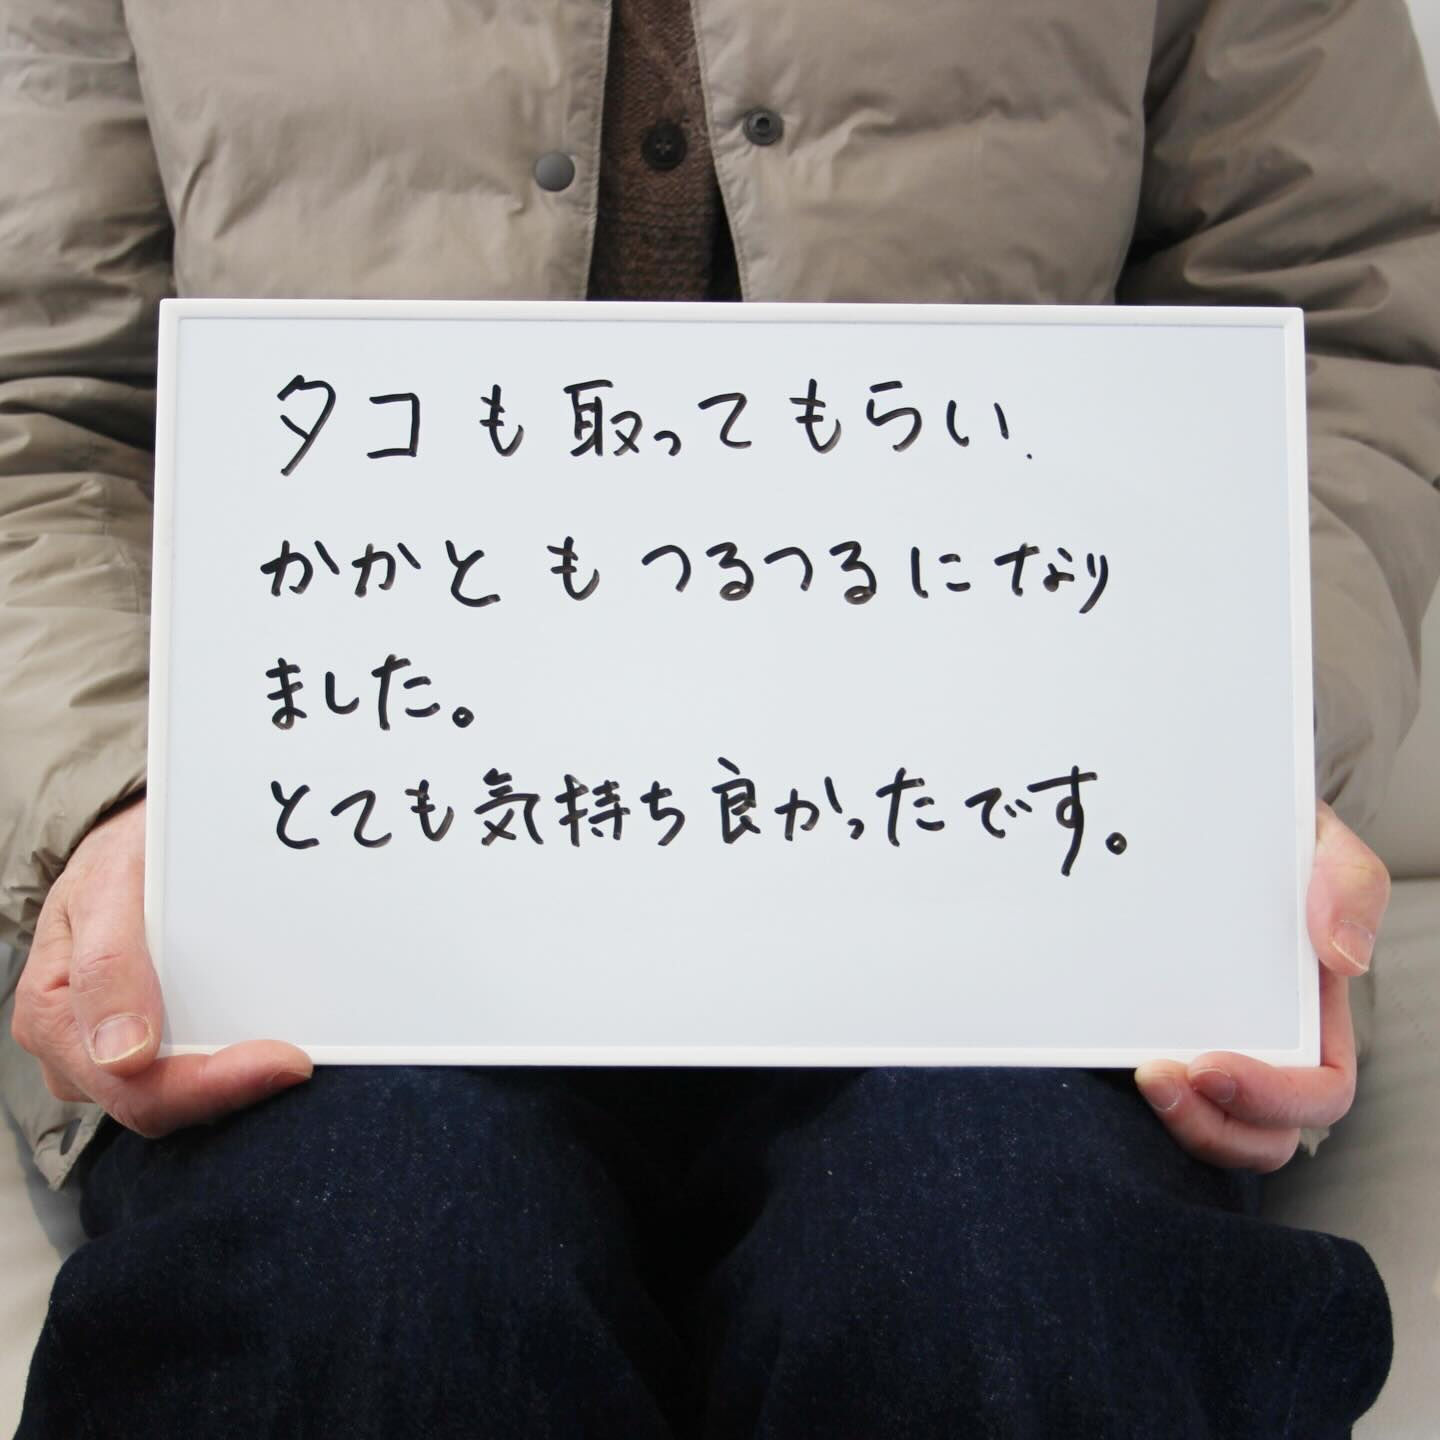 タコも取ってもらい.
かかともつるつるになり
ました。
とても気持ち良かったです。